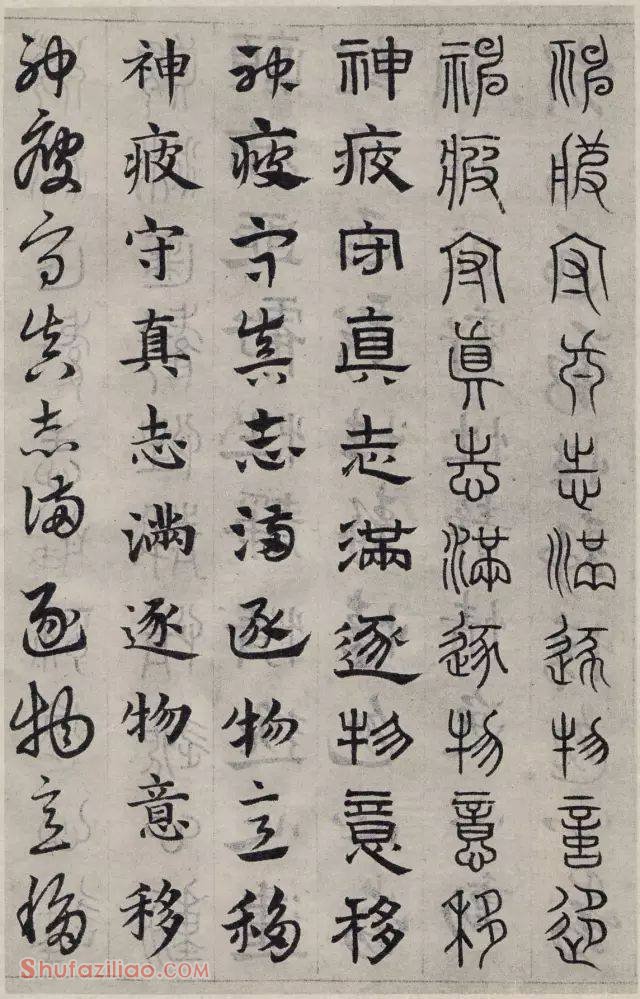 神疲守真志滿逐物意移
神疲守真志滿逐物意移
神疲守真志滿逐物意移
神疲守真志滿逐物意移
神疲守真志滿逐物意移
神疲守真志滿逐物意移
Shufaziliao.com